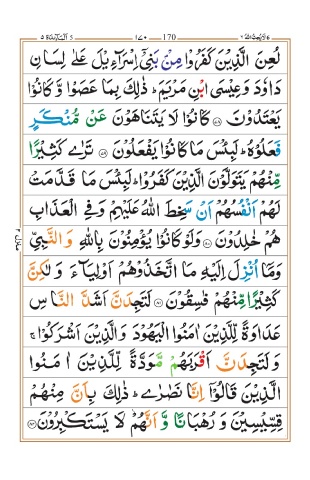 170 ١٧٠
لُعِنَ الَّذِيْنَ كَفَرُوْا مِنْۢ بَنِىْٓ اِسْرَآءِيْلَ عَلٰى لِسَانِ
دَاوٗدَ وَعِيْسَى ابْنِ مَرْيَمَ ؕ ذٰلِكَ بِمَا عَصَوْا وَّكَانُوْا
يَعْتَدُوْنَ ﴿٧٨﴾ كَانُوْا لَا يَتَنَاهَوْنَ عَنْ مُّنْكَرٍ
فَعَلُوْهُ ؕ لَبِئْسَ مَا كَانُوْا يَفْعَلُوْنَ ﴿٧٩﴾ تَرٰى كَثِيْرًا
مِّنْهُمْ يَتَوَلَّوْنَ الَّذِيْنَ كَفَرُوْا ؕ لَبِئْسَ مَا قَدَّمَتْ
لَهُمْ اَنْفُسُهُمْ اَنْ سَخِطَ اللّٰهُ عَلَيْهِمْ وَفِى الْعَذَابِ
هُمْ خٰلِدُوْنَ ﴿٨٠﴾ وَلَوْ كَانُوْا يُؤْمِنُوْنَ بِاللّٰهِ وَالنَّبِىِّ
وَمَآ اُنْزِلَ اِلَيْهِ مَا اتَّخَذُوْهُمْ اَوْلِيَآءَ وَلٰكِنَّ
كَثِيْرًا مِّنْهُمْ فٰسِقُوْنَ ﴿٨١﴾ لَتَجِدَنَّ اَشَدَّ النَّاسِ
عَدَاوَةً لِّلَّذِيْنَ اٰمَنُوا الْيَهُوْدَ وَالَّذِيْنَ اَشْرَكُوْا ۚ
وَلَتَجِدَنَّ اَقْرَبَهُمْ مَّوَدَّةً لِّلَّذِيْنَ اٰمَنُوا
الَّذِيْنَ قَالُوْٓا اِنَّا نَصٰرٰى ؕ ذٰلِكَ بِاَنَّ مِنْهُمْ
قِسِّيْسِيْنَ وَرُهْبَانًا وَّاَنَّهُمْ لَا يَسْتَكْبِرُوْنَ ﴿٨٢﴾